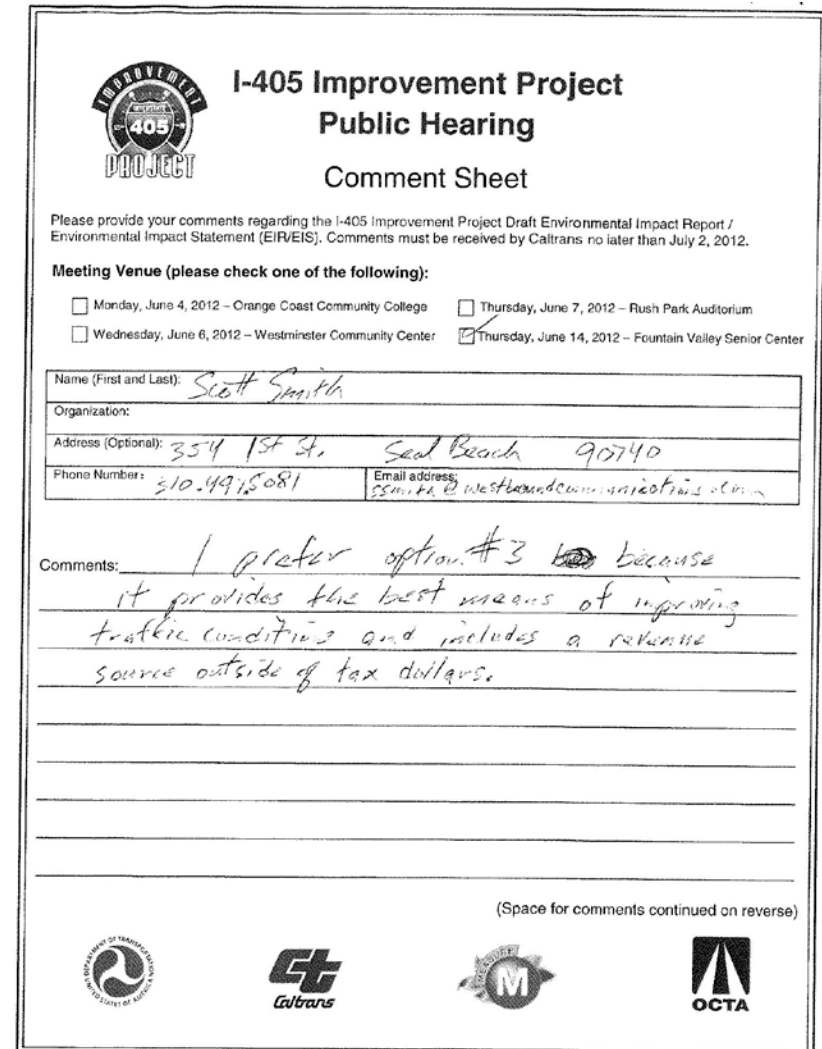 IMPROVEMENT
INTERSTATE
405
PROJECT
I-405 Improvement Project
Public Hearing
Comment Sheet
Please provide your comments regarding the I-405 Improvement Project Draft Environmental Impact Report /
Environmental Impact Statement (EIR/EIS). Comments must be received by Caltrans no later than July 2, 2012.
Meeting Venue (please check one of the following):
Monday, June 4, 2012 – Orange Coast Community College
Thursday, June 7, 2012 – Rush Park Auditorium
Wednesday, June 6, 2012 – Westminster Community Center
Thursday, June 14, 2012 – Fountain Valley Senior Center
Name (First and Last): Scott Smith
Organization:
Address (Optional): 354 1st St. Seal Beach 90740
Phone Number: 310.497.5081
Email address: ssmith@westboundcommunications.com
Comments: I prefer option #3 because
it provides the best means of improving
traffic conditions and includes a revenue
source outside of tax dollars.
(Space for comments continued on reverse)
DEPARTMENT OF TRANSPORTATION
UNITED STATES OF AMERICA
Caltrans
MEASURE
M
OCTA